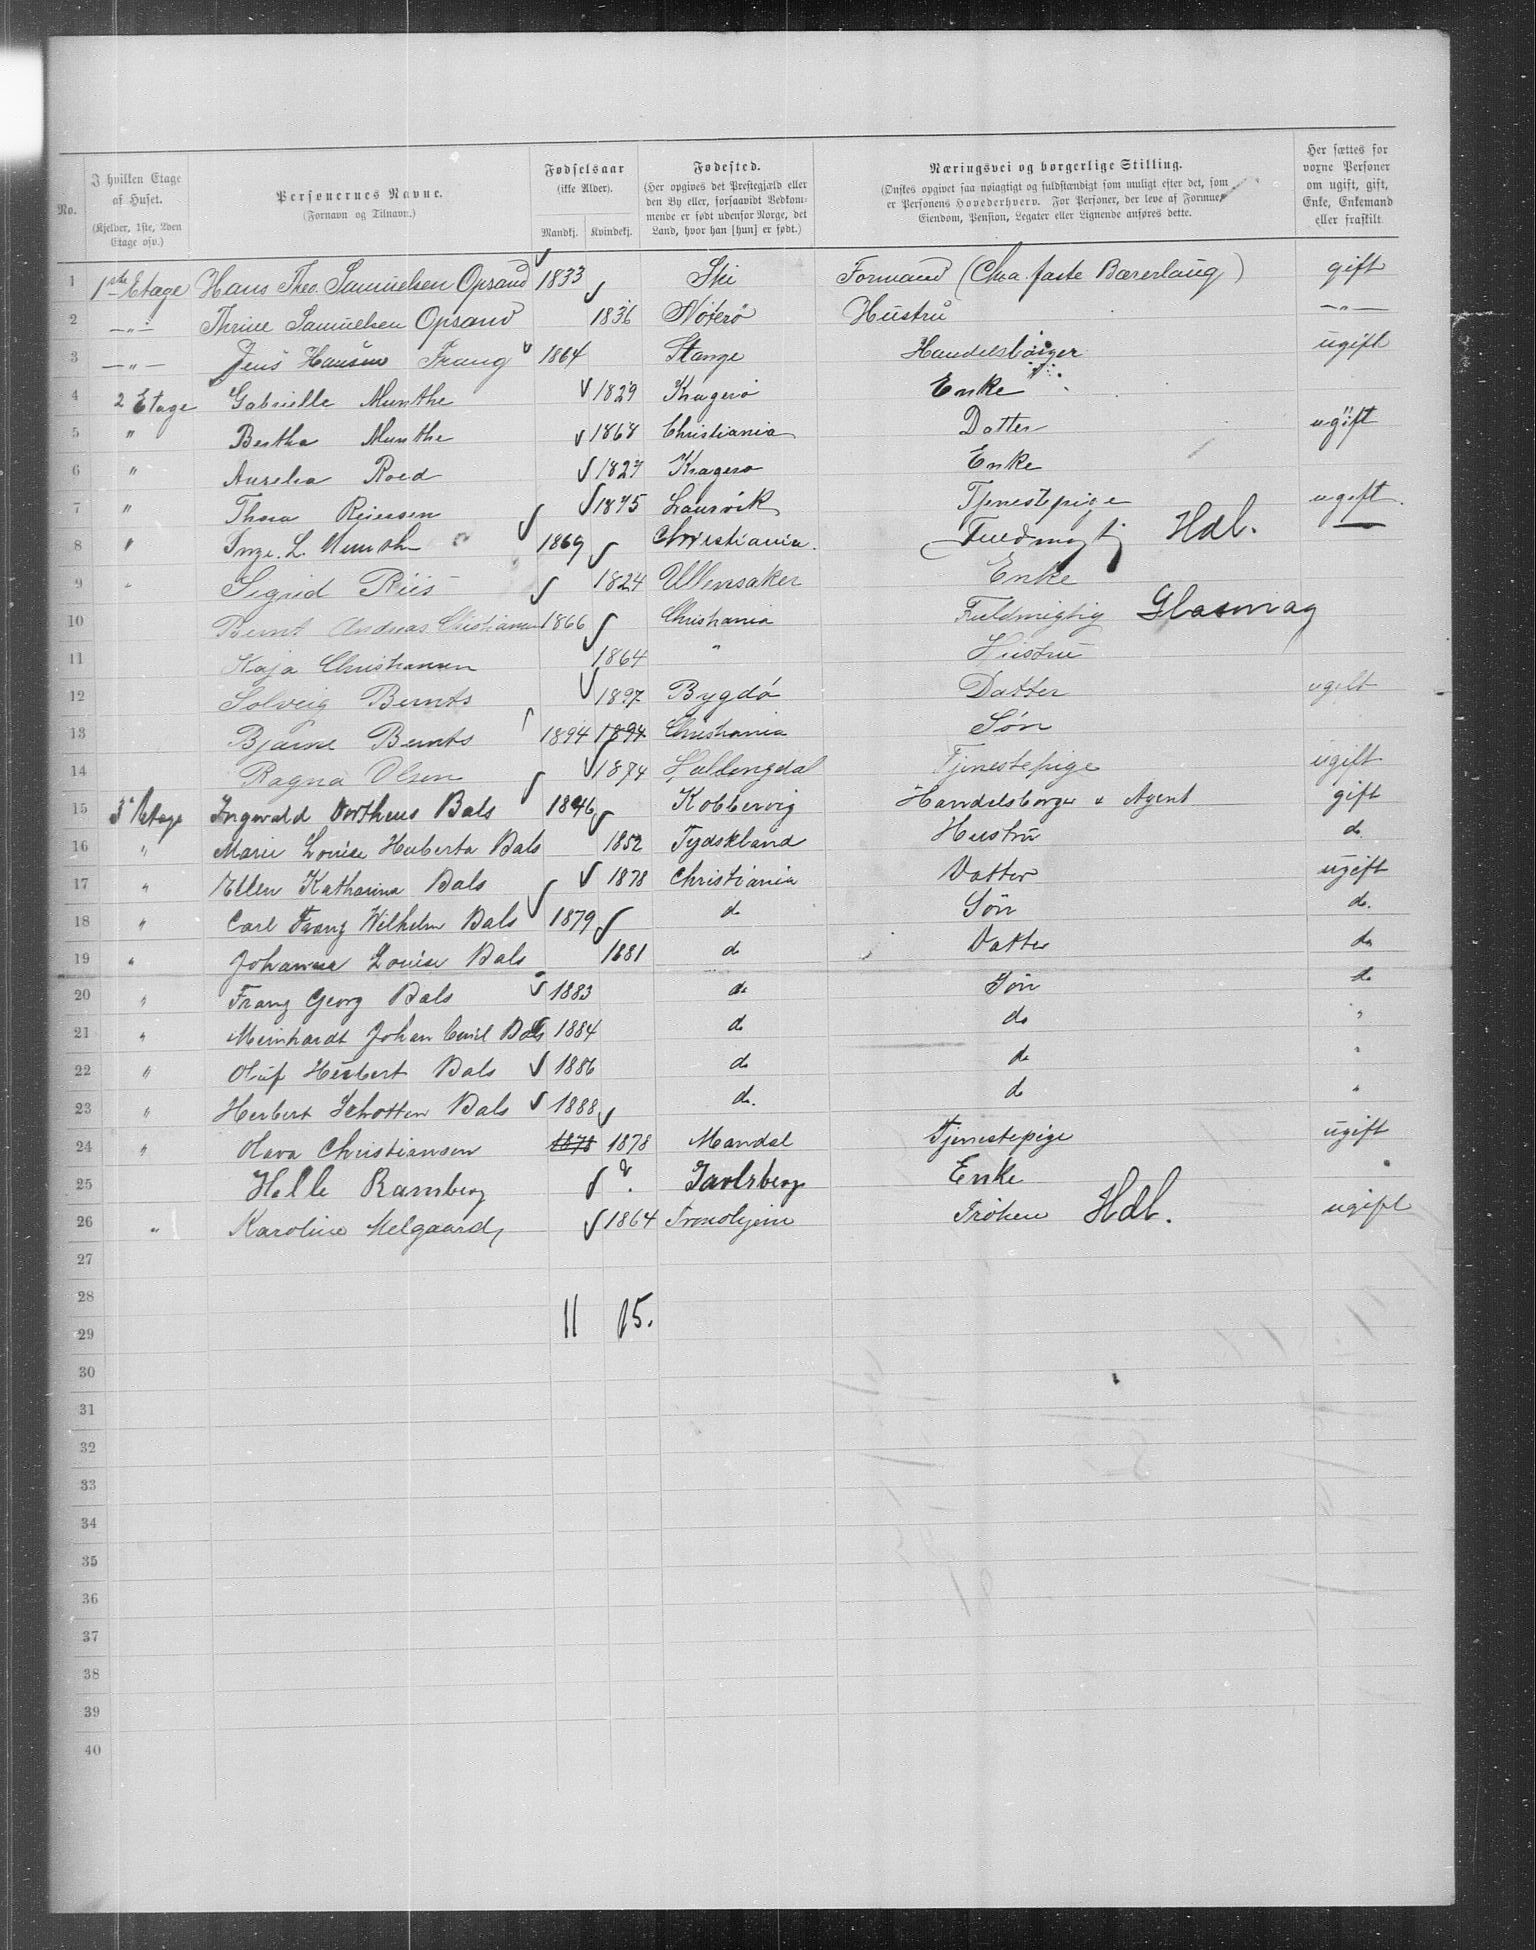 No. I hvilken Etage af Huset. (Kjelder, 1ste, 2den Etage osv.) Personernes Navne. (Fornavn og Tilnavn.) Fødselsaar (ikke Alder). Mandkj. Kvindekj. Fødested. (Her opgives det Prestegjæld eller den By eller, forsaavidt Vedkommende er født udenfor Norge, det Land, hvor han [hun] er født.) Næringsvei og borgerlige Stilling. (Ønskes opgivet saa nøiagtigt og fuldstændigt som muligt efter det, som er Personens Hovederhverv. For Personer, der leve af Formue, Eiendom, Pension, Legater eller Lignende anføres dette.) Her sættes for voxne Personer om ugift, gift, Enke, Enkemand eller fraskilt.
1 1ste Etage Hans Theo. Samuelsen Opsand 1833 Ski Formand (Chra faste Bærerlaug) gift
2 —"— Thrine Samuelsen Opsand 1836 Nøterø Hustru —"—
3 —"— Jens Hansen Frang 1864 Stange Handelsborger ugift
4 2 Etage Gabrielle Munthe 1829 Kragerø Enke
5 " Bertha Munthe 1868 Christiania Datter ugift
6 " Aurelia Roed 1827 Kragerø Enke
7 " Thora Reiersen 1875 Laurvik Tjenestepige ugift.
8 " Inge. L. Munthe 1869 Christiania. Fuldmægtig Hdl. —
9 " Sigrid Riis 1824 Ullensaker Enke
10 Bernt Andreas Christiansen 1866 Christiania Fuldmægtig Glasmag
11 Kaja Christiansen 1864 " Hustru
12 Solveig Bernts 1897 Bygdø Datter ugift
13 Bjarne Bernts 1894 1894 Christiania Søn
14 Ragna Olsen 1874 Hallingdal Tjenestepige ugift
15 3 Etage Ingwald Bals 1846 Kobbervig Handelsborger & Agent gift
16 " Marie Louise Huberta Bals 1852 Tydskland Hustru do.
17 " Ellen Katharina Bals 1878 Christiania Datter ugift
18 " Carl Franz Wilhelm Bals 1879 do Søn do.
19 " Johanna Louise Bals 1881 do Datter do
20 " Franz Georg Bals 1883 do Søn do
21 " Meinhardt Johan Emil Bals 1884 do do "
22 " Oluf Herbert Bals 1886 do do "
23 " Herbert Schotten Bals 1888 do. do "
24 " Olava Christiansen 1878 1878 Mandal Tjenestepige ugift
25 Helle Ramberg ? Jarlsberg Enke
26 " Karoline Melgaard, 1864 Trondhjem Frøken Hdl. ugift
27
28
11 15.
29
30
31
32
33
34
35
36
37
38
39
40